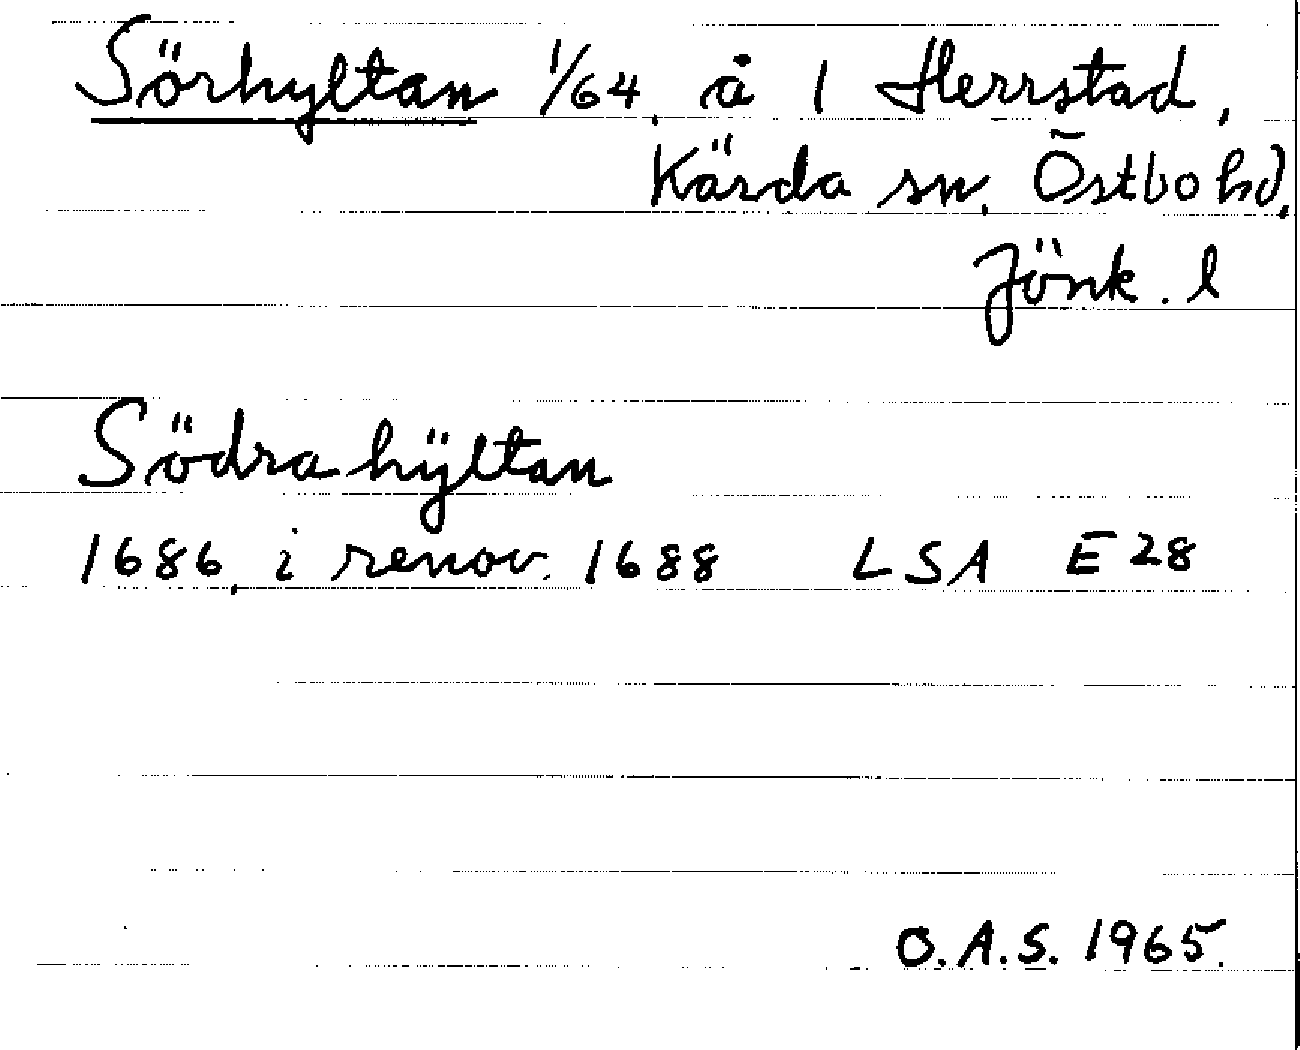 Sörhyltan 1/64, å 1 Herrstad,
Kärda sn, Östbo hd,
Jönk. l
Södra hÿltan
1686, i renov. 1688 LSA E 28
O.A.S. 1965.